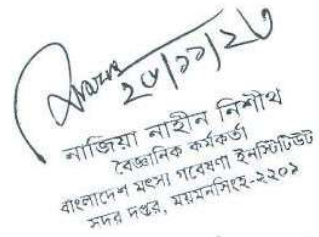 ২৫/১১/২৩
নাজিয়া নাহীন নিশীথ
বৈজ্ঞানিক কর্মকর্তা
বাংলাদেশ মৎস্য গবেষণা ইনস্টিটিউট
সদর দপ্তর, ময়মনসিংহ-২২০১